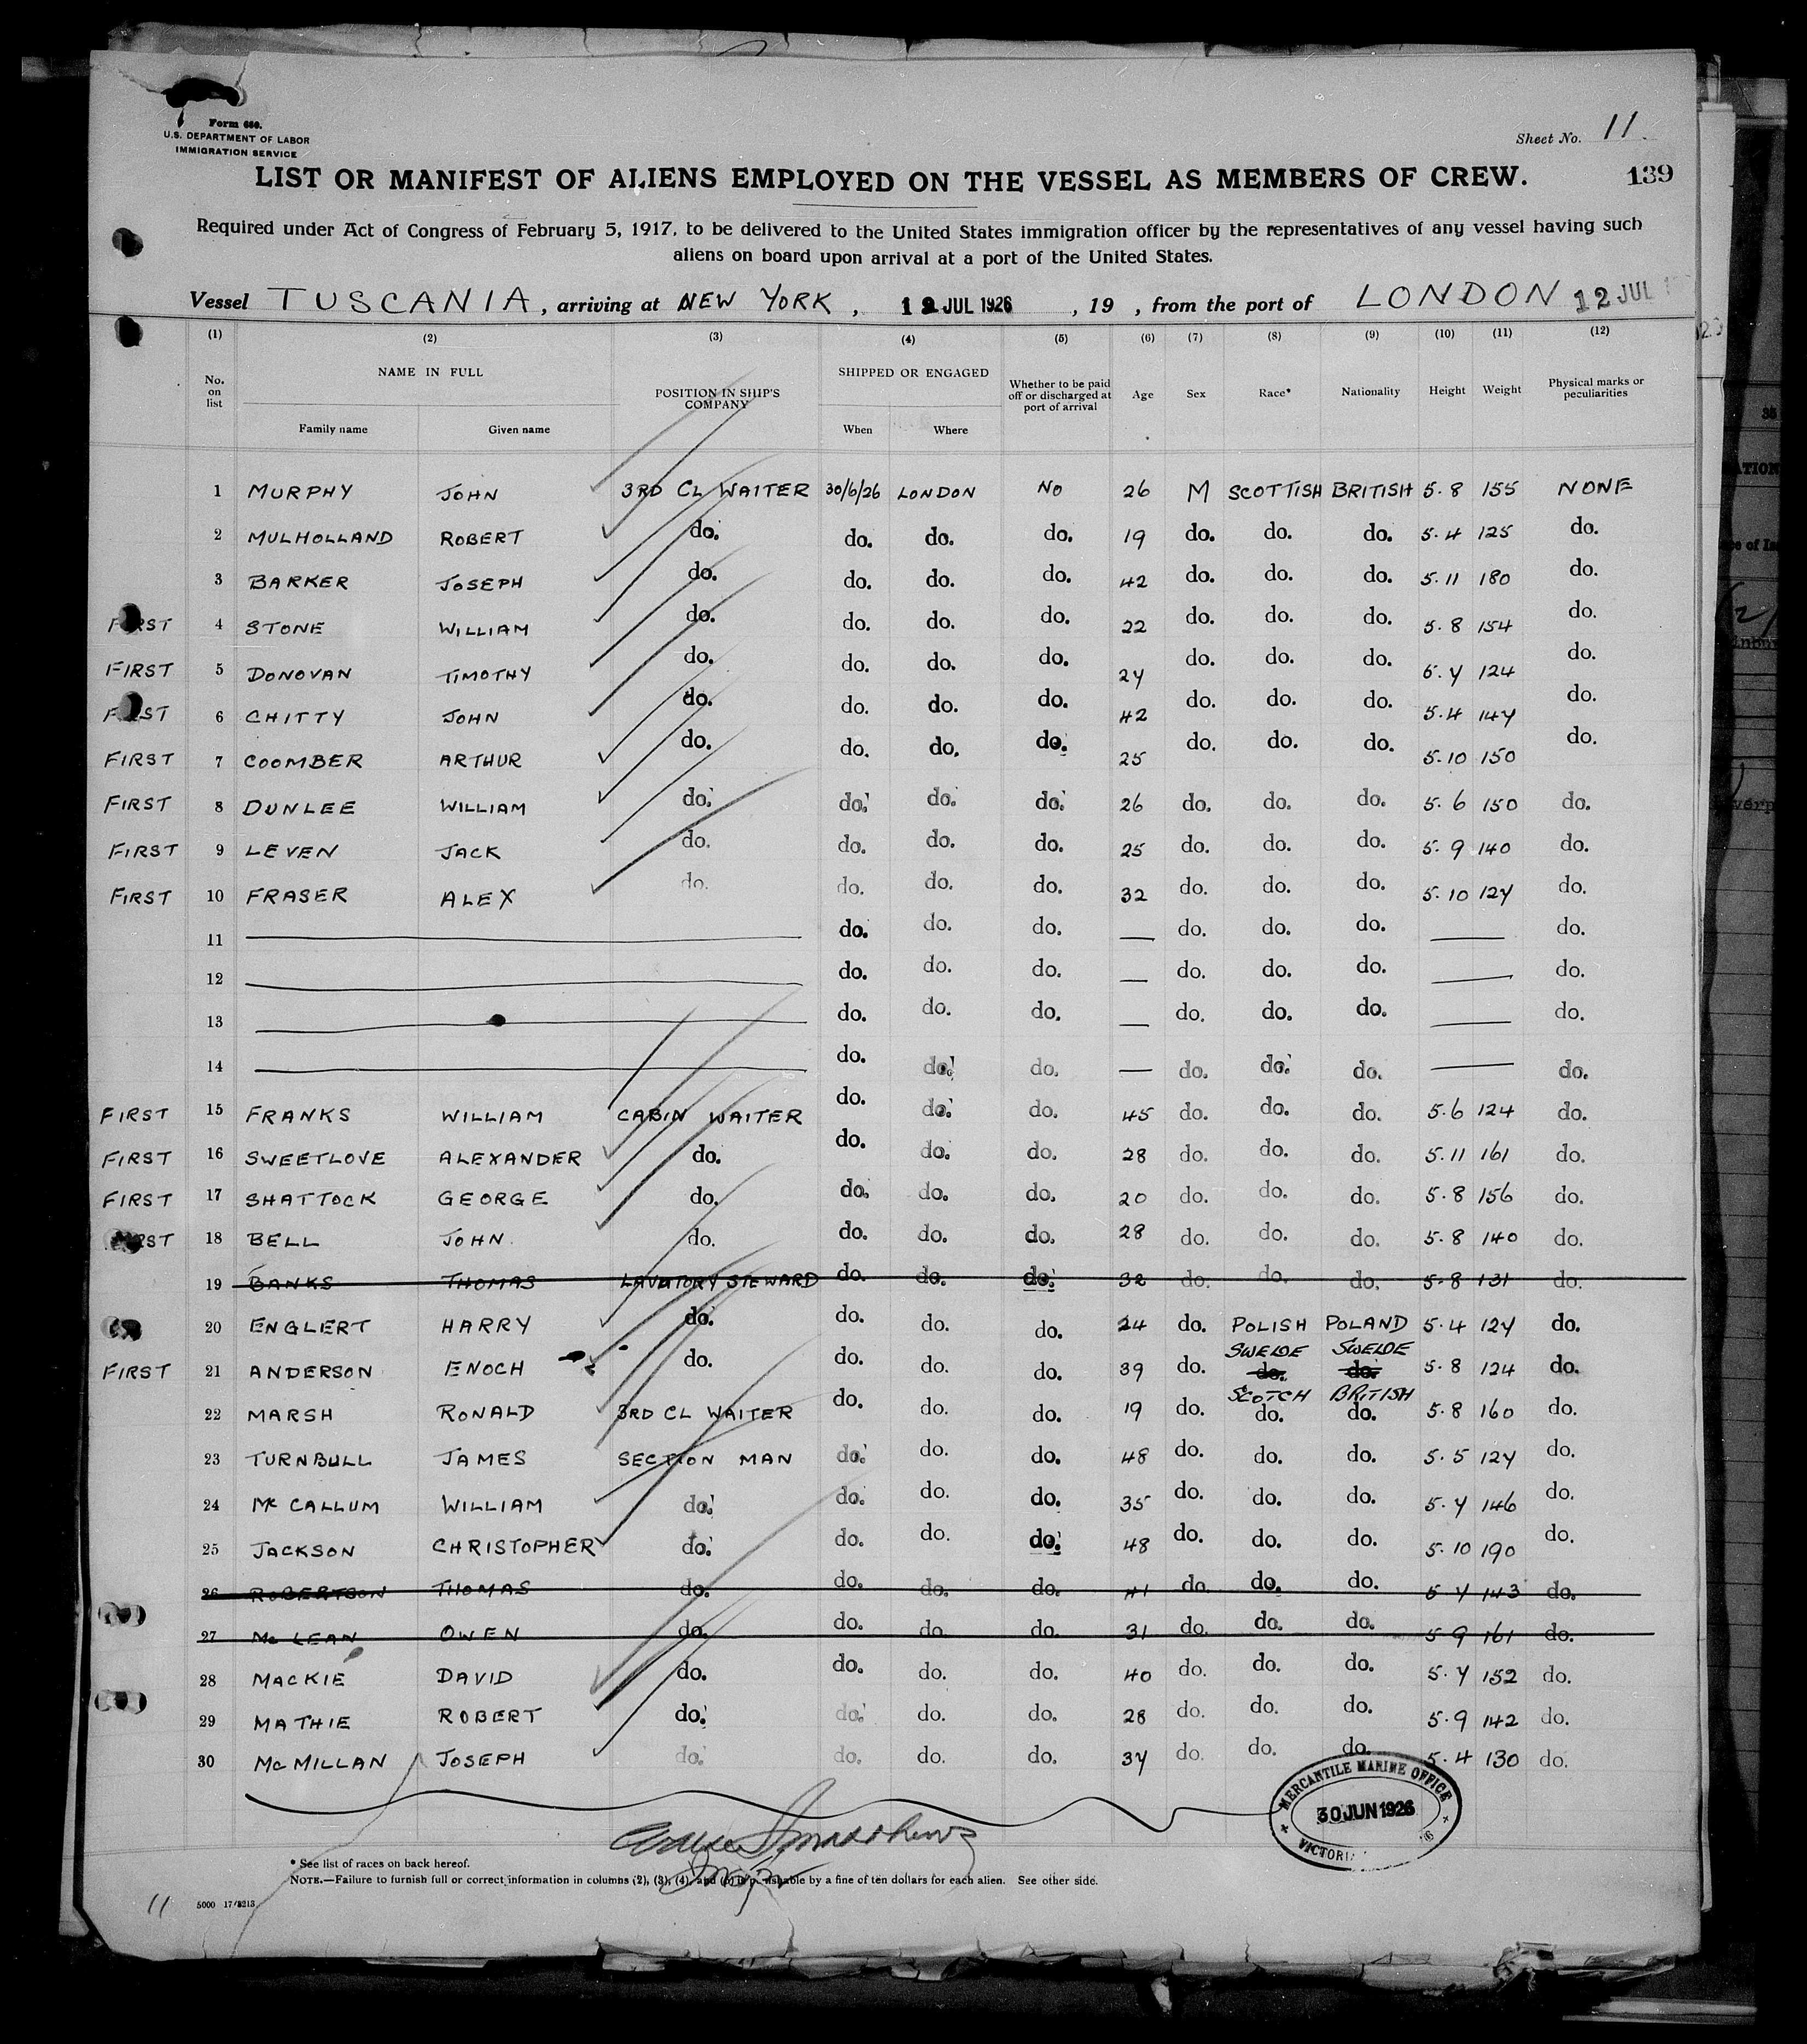 Form 680.
U.S. DEPARTMENT OF LABOR
IMMIGRATION SERVICE
Sheet No. 11.
LIST OR MANIFEST OF ALIENS EMPLOYED ON THE VESSEL AS MEMBERS OF CREW.
139
Required under Act of Congress of February 5, 1917, to be delivered to the United States immigration officer by the representatives of any vessel having such
aliens on board upon arrival at a port of the United States.
Vessel TUSCANIA, arriving at NEW YORK, 12 JUL 1926, 19 , from the port of LONDON 12 JUL
(1) (2) (3) (4) (5) (6) (7) (8) (9) (10) (11) (12)
No. on list NAME IN FULL POSITION IN SHIP'S COMPANY SHIPPED OR ENGAGED Whether to be paid off or discharged at port of arrival Age Sex Race* Nationality Height Weight Physical marks or peculiarities
Family name Given name When Where
1 MURPHY JOHN 3RD CL WAITER 30/6/26 LONDON NO 26 M SCOTTISH BRITISH 5.8 155 NONE
2 MULHOLLAND ROBERT do. do. do. do. 19 do. do. do. 5.4 125 do.
3 BARKER JOSEPH do. do. do. do. 42 do. do. do. 5.11 180 do.
FIRST 4 STONE WILLIAM do. do. do. do. 22 do. do. do. 5.8 154 do.
FIRST 5 DONOVAN TIMOTHY do. do. do. do. 27 do. do. do. 5.7 124 do.
FIRST 6 CHITTY JOHN do. do. do. do. 42 do. do. do. 5.4 147 do.
FIRST 7 COOMBER ARTHUR do. do. do. do. 25 do. do. do. 5.10 150 do.
FIRST 8 DUNLEE WILLIAM do. do. do. do. 26 do. do. do. 5.6 150 do.
FIRST 9 LEVEN JACK do. do. do. do. 25 do. do. do. 5.9 140 do.
FIRST 10 FRASER ALEX do. do. do. do. 32 do. do. do. 5.10 127 do.
11 — do. do. do. — do. do. do. — do.
12 — do. do. do. — do. do. do. — do.
13 — do. do. do. — do. do. do. — do.
14 — do. do. do. — do. do. do. — do.
FIRST 15 FRANKS WILLIAM CABIN WAITER do. do. do. 45 do. do. do. 5.6 124 do.
FIRST 16 SWEETLOVE ALEXANDER do. do. do. do. 28 do. do. do. 5.11 161 do.
FIRST 17 SHATTOCK GEORGE do. do. do. do. 20 do. do. do. 5.8 156 do.
FIRST 18 BELL JOHN. do. do. do. do. 28 do. do. do. 5.8 140 do.
19 BANKS THOMAS LAVATORY STEWARD do. do. do. 32 do. do. do. 5.8 131 do.
20 ENGLERT HARRY do. do. do. do. 24 do. POLISH POLAND 5.4 127 do.
SWEDE SWEDE
FIRST 21 ANDERSON ENOCH do. do. do. do. 39 do. do. do. 5.8 124 do.
SCOTCH BRITISH
22 MARSH RONALD 3RD CL WAITER do. do. do. 19 do. do. do. 5.8 160 do.
23 TURNBULL JAMES SECTION MAN do. do. do. 48 do. do. do. 5.5 127 do.
24 McCALLUM WILLIAM do. do. do. do. 35 do. do. do. 5.7 146 do.
25 JACKSON CHRISTOPHER do. do. do. do. 48 do. do. do. 5.10 190 do.
26 ROBERTSON THOMAS do. do. do. do. 41 do. do. do. 5 7 143 do.
27 McLEAN OWEN do. do. do. do. 31 do. do. do. 5 9 161 do.
28 MACKIE DAVID do. do. do. do. 40 do. do. do. 5.7 152 do.
29 MATHIE ROBERT do. do. do. do. 28 do. do. do. 5.9 142 do.
30 McMILLAN JOSEPH do. do. do. do. 37 do. do. do. 5.4 130 do.
MERCANTILE MARINE OFFICE
30 JUN 1926
VICTORIA
* See list of races on back hereof.
NOTE.—Failure to furnish full or correct information in columns (2), (3), (4), and (5) is punishable by a fine of ten dollars for each alien. See other side.
11 5000 17/8213